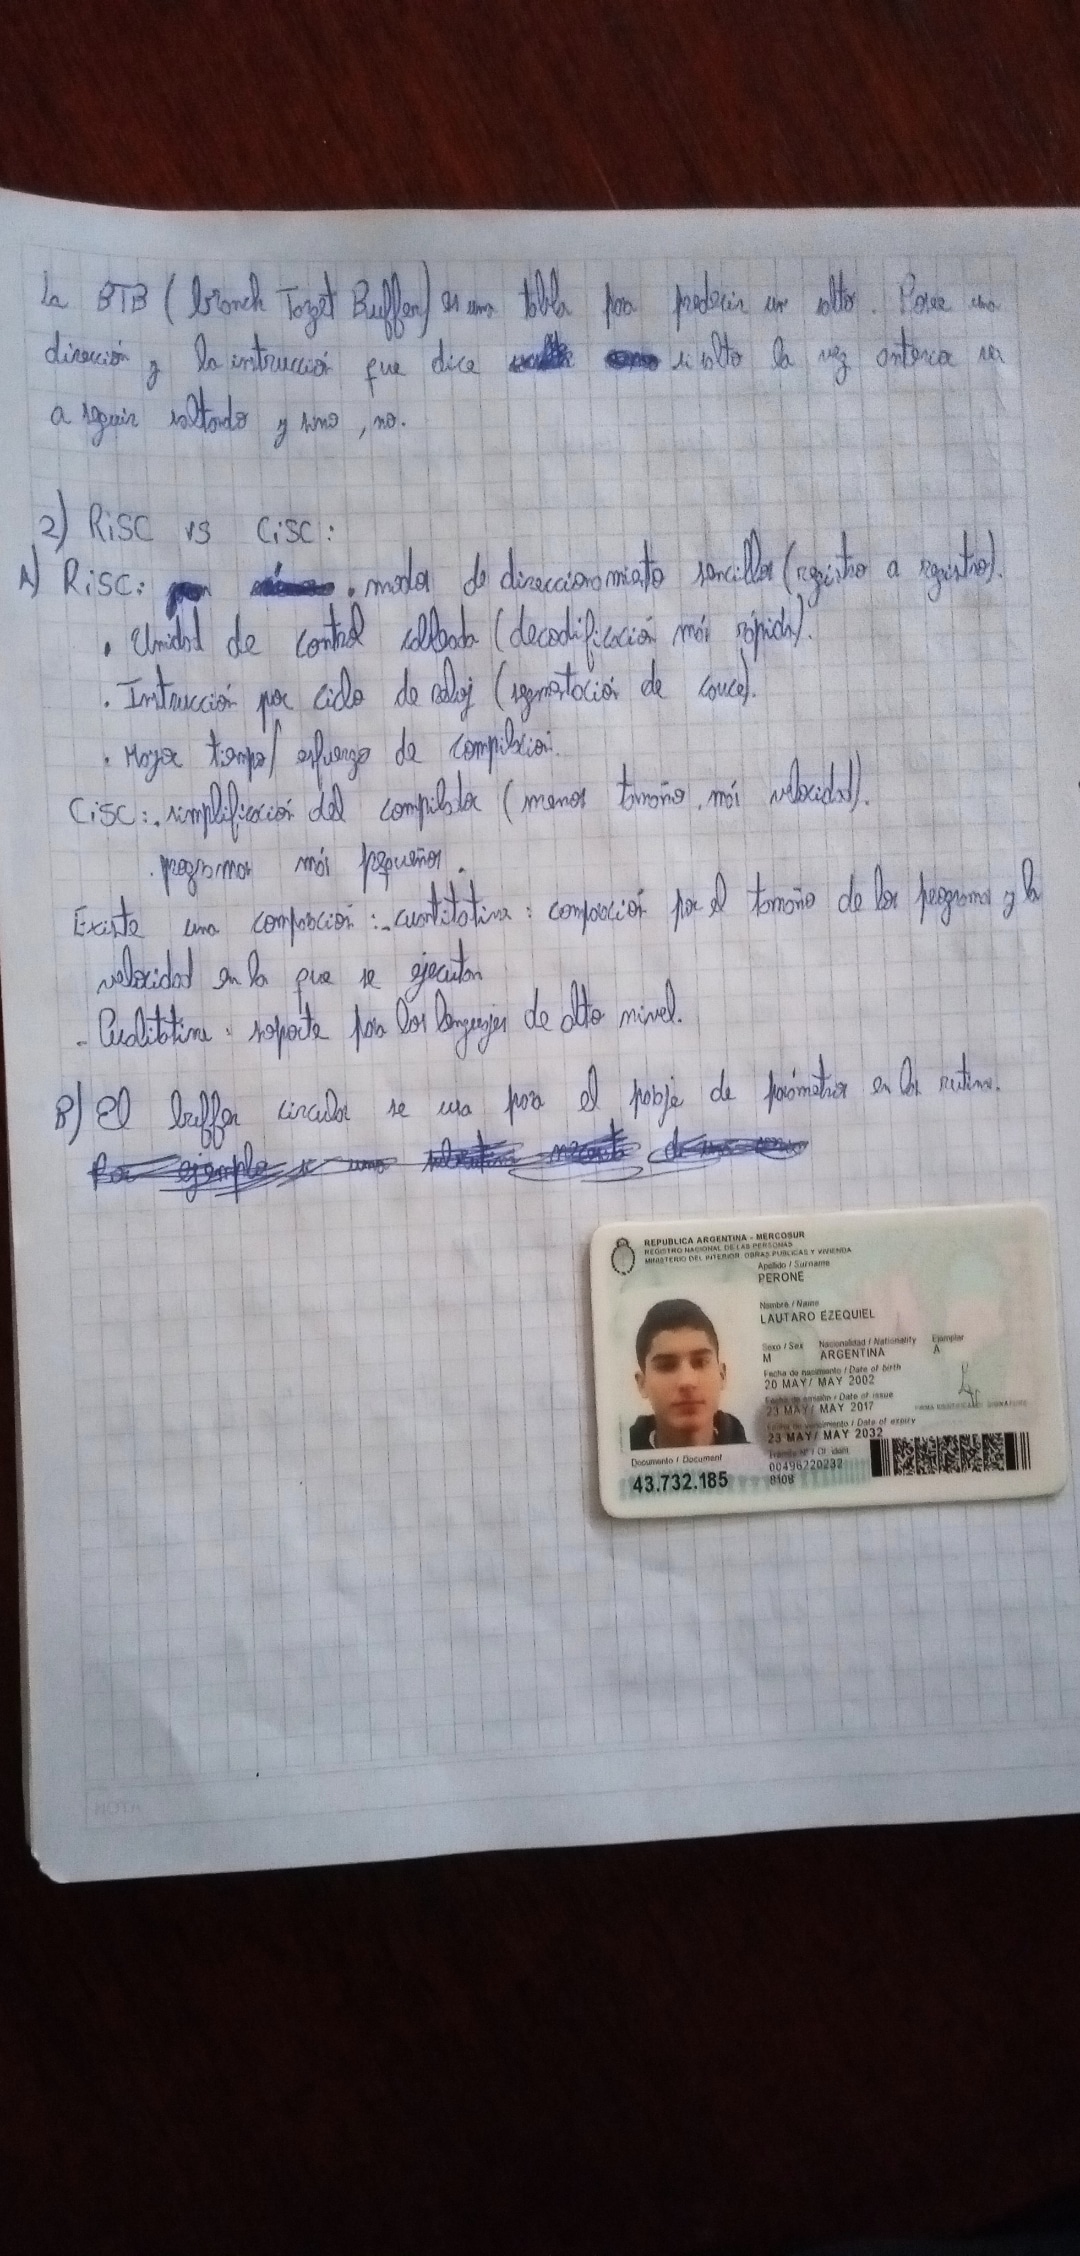 La BTB (Branch Target Buffer) es una tabla para predecir un salto. Posee una
dirección y la instrucción que dice si salto la vez anterior va
a seguir saltando y sino, no.
2) RiSC vs CiSC:
A) RiSC: . modos de direccionamiento sencillos (registro a registro).
. Unidad de control cableada (decodificación más rápida).
. Instrucción por ciclo de reloj (segmentación de cauce).
. Mayor tiempo/esfuerzo de compilacion.
CiSC: . simplificación del compilador (menor tamaño, más velocidad).
. programas más pequeños.
Existe una comparación: - cuantitativa: comparación por el tamaño de los programas y la
velocidad en la que se ejecutan
- Cualitativa: soporte para los lenguajes de alto nivel.
B) El buffer circular se usa para el pasaje de parámetros en las rutinas.
Por ejemplo si una
REPUBLICA ARGENTINA - MERCOSUR
REGISTRO NACIONAL DE LAS PERSONAS
MINISTERIO DEL INTERIOR, OBRAS PUBLICAS Y VIVIENDA
Apellido / Surname
PERONE
Nombre / Name
LAUTARO EZEQUIEL
Sexo / Sex Nacionalidad / Nationality Ejemplar
M ARGENTINA A
Fecha de nacimiento / Date of birth
20 MAY/ MAY 2002
Fecha de emisión / Date of issue
23 MAY/ MAY 2017
Fecha de vencimiento / Date of expiry
23 MAY/ MAY 2032
Trámite Nº / Of. ident.
00496220232
8108
Documento / Document
43.732.185
NOTA